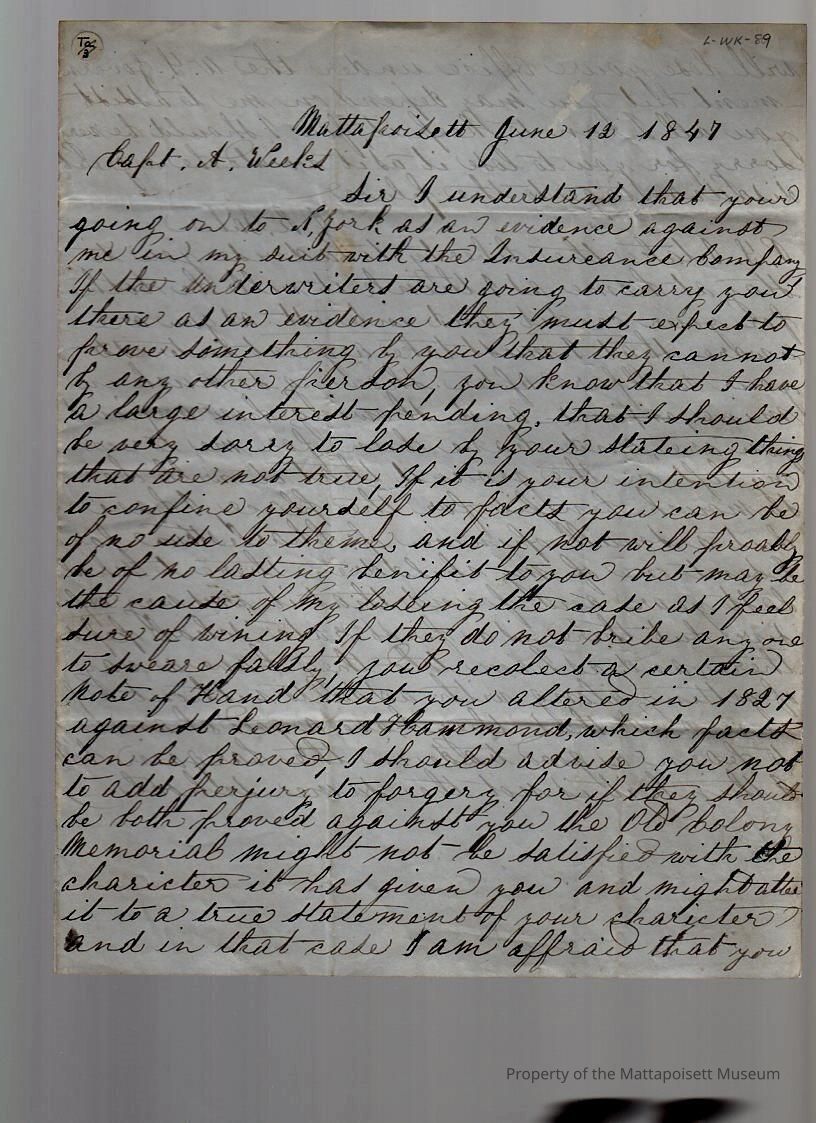 L-WK-89
Mattapoisett June 12 1847
Capt. A. Weeks
Sir I understand that your
going on to N, York as an evidence against
me in my suit with the Insureance Company
If the Underwriters are going to carry you
there as an evidence they must expect to
prove something by you that they cannot
by any other person, you know that I have
a large interest pending, that I should
be very sorry to lose by your stateing things
that are not true, If it is your intention
to confine yourself to facts you can be
of no use to theme, and if not will proably
be of no lasting benifit to you but may be
the cause of my loseing the case as I feel
sure of wining If they do not bribe any one
to sweare falsly, you recolect a certain
Note of Hand that you altered in 1827
against Leonard Hammond, which facts
can be proved, I should advise you not
to add perjury to forgery for if they should
be both proved against you the Old Colony
Memorial might not be satisfied with the
charicter it has given you and might alter
it to a true statement of your charicter
and in that case I am affraid that you
Property of the Mattapoisett Museum